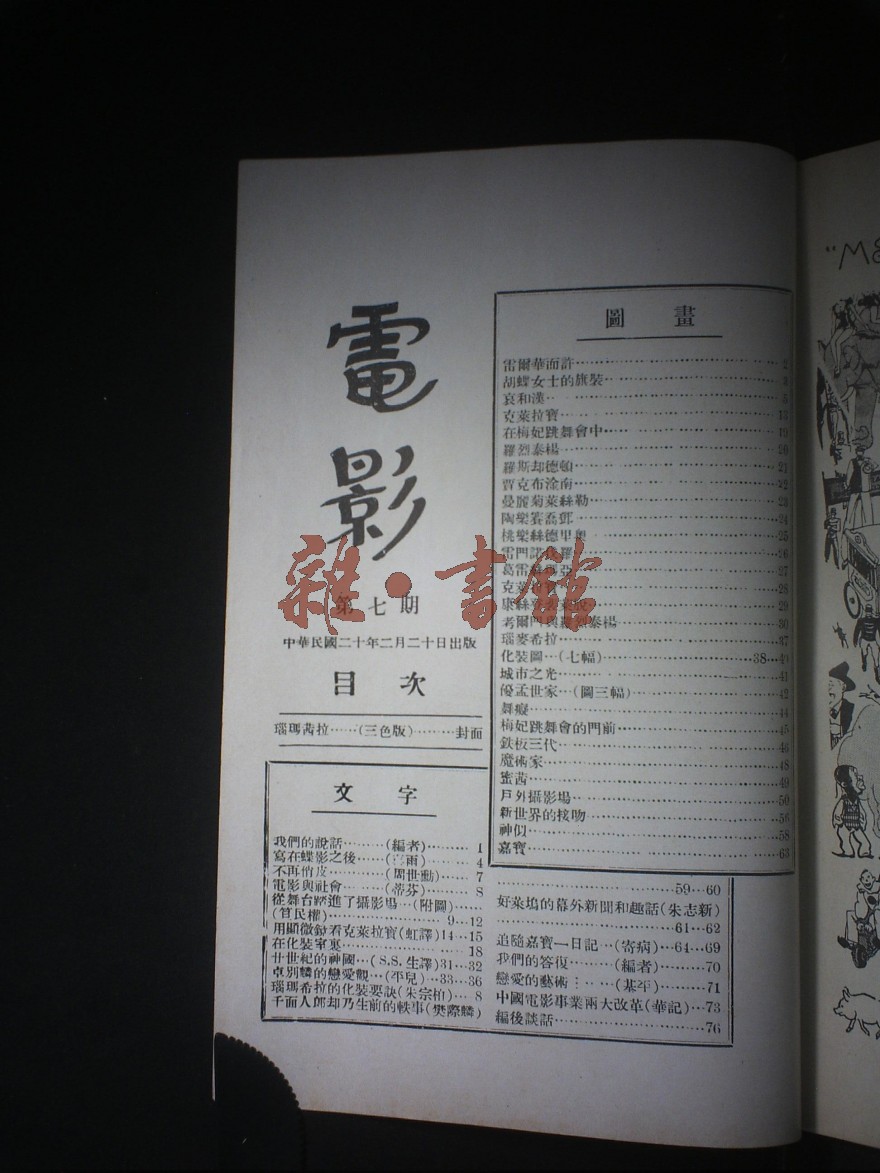 電影
第七期
中華民國二十年二月二十日出版
目次
瑙瑪茜拉……(三色版)………封面
圖畫
雷爾華而許……2
胡蝶女士的旗裝……3
哀和漢……5
克萊拉寶……13
在梅妃跳舞會中……19
羅烈泰楊……20
羅斯却德頓……21
賈克布淦南……22
曼麗菊萊絲勒……23
陶樂賽喬鄧……24
桃樂絲德里奧……25
雷門諾……26
葛雷……27
克萊拉……28
康絲……29
考爾門與羅烈泰楊……30
瑙麥希拉……37
化裝圖…(七幅)……38—40
城市之光……41
優孟世家…(圖三幅)……42
舞癡……44
梅妃跳舞會的門前……45
鉄板三代……46
魔術家……48
蜜茜……49
戶外攝影場……50
新世界的接吻……56
神似……58
嘉寶……63
文字
我們的說話………(編者)……1
寫在蝶影之後……(雨)……4
不再俏皮…………(周世勳)……7
電影與社會………(蒂芬)……8
從舞台踏進了攝影場…(附圖)……
(笪民權)……9—12
用顯微鏡看克萊拉寶(虹譯)14—15
在化裝室裏……18
廿世紀的神國…(S.S.生譯)31—32
卓別麟的戀愛觀…(平兒)…33—36
瑙瑪希拉的化裝要訣(朱宗柏)…8
千面人郎却乃生前的軼事(樊際麟)
……59—60
好萊塢的幕外新聞和趣話(朱志新)
……61—62
追隨嘉寶一日記…(寄病)…64—69
我們的答復………(編者)……70
戀愛的藝術………(基平)……71
中國電影事業兩大改革(華記)…73
編後談話……76
雜·書館
"M